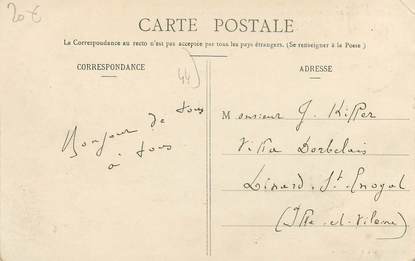 20€
CARTE POSTALE
La Correspondance au recto n'est pas acceptée par tous les pays étrangers. (Se renseigner à la Poste)
CORRESPONDANCE
ADRESSE
44
Bonjour de tous
à tous
Monsieur J. Kiffer
Villa
Dinard-St-Enogat
(Ille-et-Vilaine)